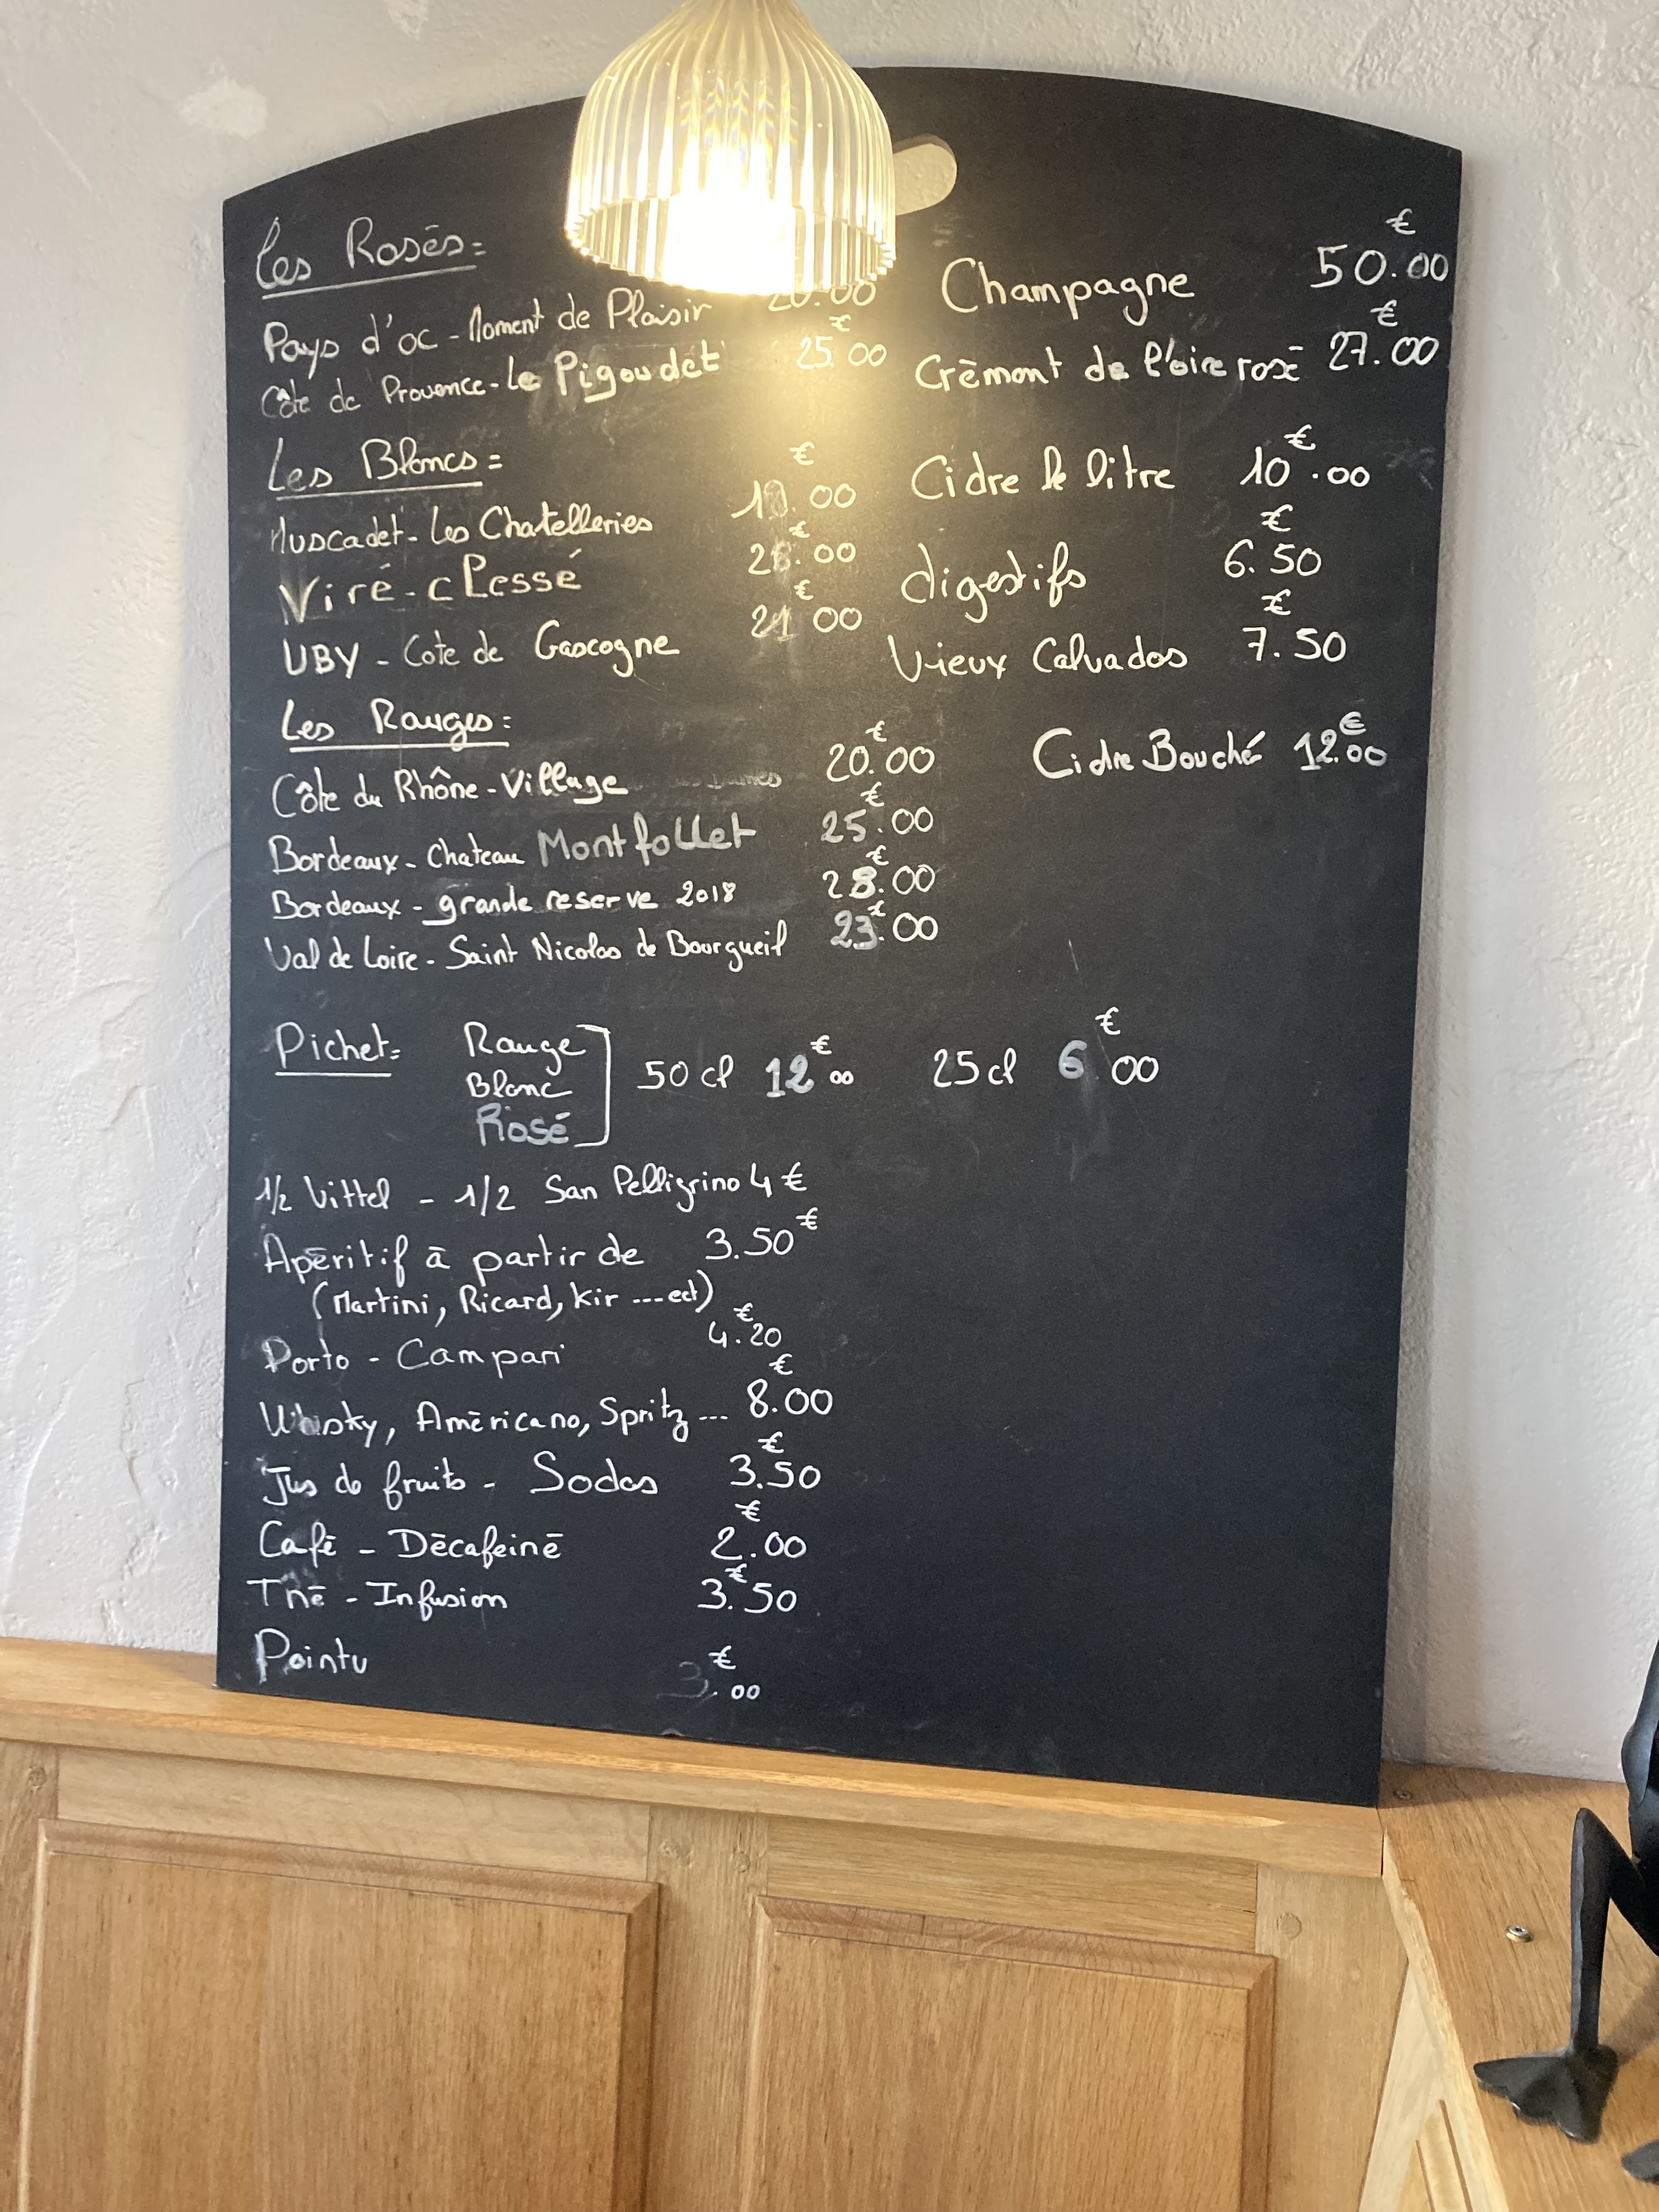 Les Rosés:
Pays d'oc - Moment de Plaisir 20.00
Côte de Provence - Le Pigoudet 25.00 €
Les Blancs:
Muscadet - Les Chatelleries .00 €
Viré-clessé .00 €
UBY - Cote de Gascogne 21 00 €
Les Rouges:
Côte du Rhône - Village 20.00 €
Bordeaux - Chateau Montfollet 25.00 €
Bordeaux - grande reserve 2018 28.00 €
Val de Loire - Saint Nicolas de Bourgueil 23.00 €
Pichet: Rouge
Blanc
Rosé
50 cl 12 € 00 25 cl 6 € 00
1/2 Vittel - 1/2 San Pelligrino 4 €
Apéritif à partir de 3.50 €
(Martini, Ricard, Kir ---ect)
Porto - Campari 4.20 €
Whisky, Américano, Spritz --- 8.00 €
Jus de fruits - Sodas 3.50 €
Café - Décafeiné 2.00 €
Thé - Infusion 3.50 €
Pointu 3.00 €
Champagne 50.00 €
Crèmont de Loire rosé 27.00 €
Cidre le litre 10 €.00
digestifs 6.50 €
Vieux Calvados 7.50 €
Cidre Bouché 12.00 €